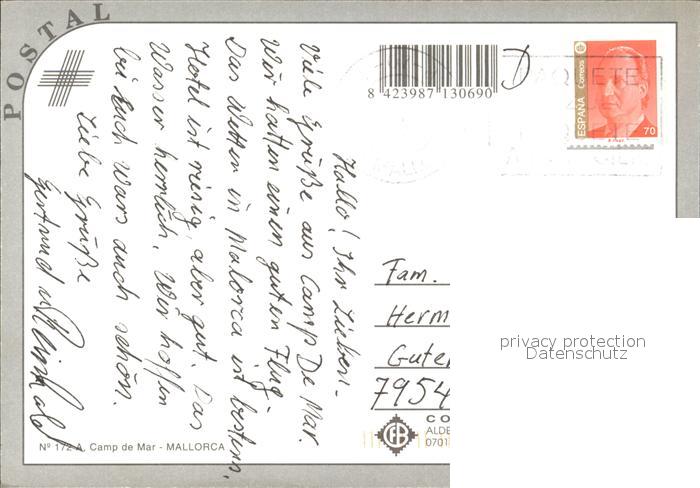 POSTAL
8 423987 130690
D
Correos
ESPAÑA
70
Hallo! Ihr Lieben -
Viele Grüße aus Camp De Mar.
Wir hatten einen guten Flug -
Das Wetter in Malorca ist bestens,
Hotel ist riesig, aber gut. Das
Wasser herrlich. Wir hoffen
bei Euch wars auch schön.
Liebe Grüße
Gertrud u Reinhold
Fam.
Herm
Guter
7954
privacy protection
Datenschutz
CO
ALDE
0701
Nº 172 A, Camp de Mar - MALLORCA